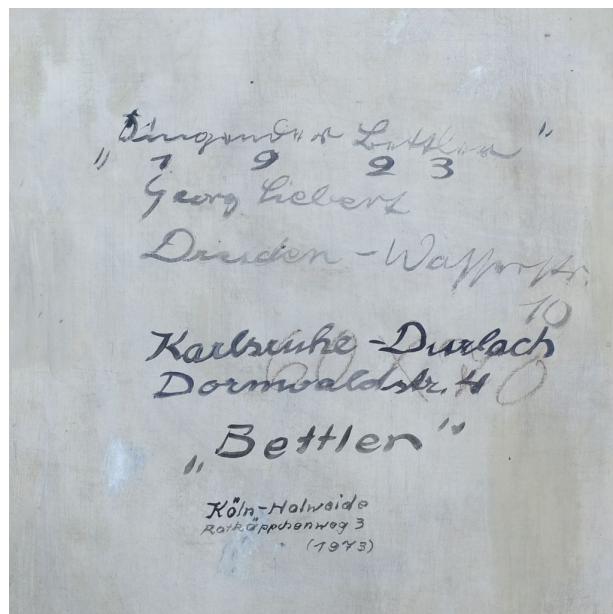 „Singender Bettler"
1923
Georg Siebert
Dresden - Wasserstr.
10
Karlsruhe - Durlach
Dornwaldstr. 4
60 x 80
„Bettler"
Köln-Holweide
Rotkäppchenweg 3
(1973)